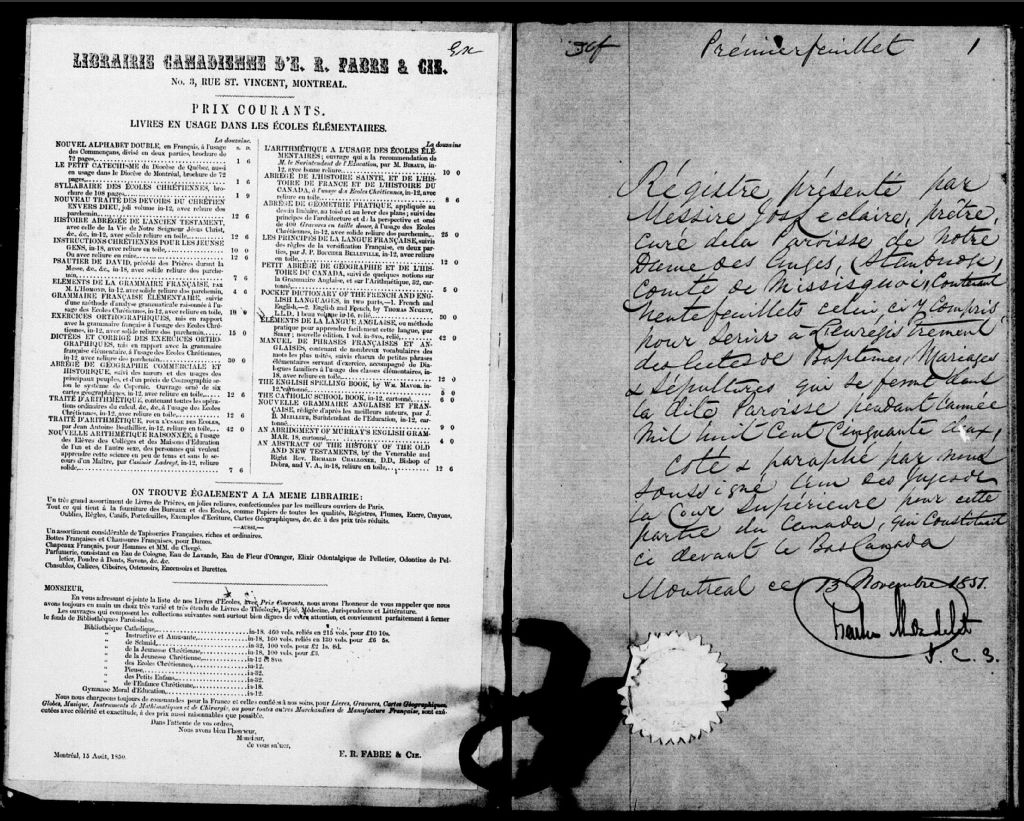 LIBRAIRIE CANADIENNE D'E. R. FABRE & CIE.
No. 3, RUE ST. VINCENT, MONTREAL.
PRIX COURANTS.
LIVRES EN USAGE DANS LES ÉCOLES ÉLÉMENTAIRES.
La douzaine.
s. D.
NOUVEL ALPHABET DOUBLE, en Français, à l'usage
des Commençans, divisé en deux parties, brochure de
72 pages, 1 6
LE PETIT CATECHISME du Diocèse de Québec, aussi
en usage dans le Diocèse de Montréal, brochure de 72
pages, 1 6
SYLLABAIRE DES ÉCOLES CHRÉTIENNES, bro-
chure de 108 pages, 1 9
NOUVEAU TRAITÉ DES DEVOIRS DU CHRÉTIEN
ENVERS DIEU, joli volume in-12, avec reliure en
parchemin, 12 6
HISTOIRE ABRÉGÉE DE L'ANCIEN TESTAMENT,
avec celle de la Vie de Notre Seigneur Jésus Christ,
&c. &c., in-12, avec solide reliure en toile, 12 6
INSTRUCTIONS CHRÉTIENNES POUR LES JEUNES
GENS, in-18, avec reliure en toile, 10 0
Ou avec reliure en cuire, 12 6
PSAUTIER DE DAVID, précédé des Prières durant la
Messe, &c. &c., in-18, avec solide reliure des parche-
min, 7 6
ELÉMENS DE LA GRAMMAIRE FRANÇAISE, PAR
M. L'Homond, in-12, avec solide reliure des parchemin, 4 6
GRAMMAIRE FRANÇAISE ÉLÉMENTAIRE, suivie
d'une méthode d'analyse grammaticale raisonnée à l'u-
sage des Ecoles Chrétiennes, in-12, avec reliure en toile, 10 0
EXERCICES ORTHOGRAPHIQUES, mis en rapport
avec la grammaire française à l'usage des Ecoles Chré-
tiennes, in-12, avec solide reliure des parchemin, 15 0
DICTÉES ET CORRIGÉ DES EXERCICES ORTHO-
GRAPHIQUES, mis en rapport avec la grammaire
française élémentaire, à l'usage des Ecoles Chrétiennes,
in-12, avec reliure des parchemin, 30 0
ABRÉGÉ DE GÉOGRAPHIE COMMERCIALE ET
HISTORIQUE, suivi des mœurs et des usages des
principaux peuples, et d'un précis de Cosmographie se-
lon le système de Copernic. Ouvrage orné de six
cartes géographiques, in-12, avec reliure en toile, 12 6
TRAITÉ D'ARITHMÉTIQUE, contenant toutes les opéra-
tions ordinaires du calcul, &c. &c., à l'usage des Ecoles
Chrétiennes, in-12, avec reliure en toile, 12 6
TRAITÉ D'ARITHMÉTIQUE, POUR L'USAGE DES ECOLES,
par Jean Antoine Bouthillier, in-12, avec reliure en toile, 42 0
NOUVELLE ARITHMÉTIQUE RAISONNÉE, à l'usage
des Elèves des Collèges et des Maisons d'Education
de l'un et de l'autre sexe, des personnes qui veulent
apprendre cette science en peu de tems et sans le se-
cours d'un Maître, par Casimir Ladreyt, in-12, reliure
solide, 7 6
La douzaine
L'ARITHMÉTIQUE A L'USAGE DES ÉCOLES ÉLÉ-
MENTAIRES; ouvrage qui a la recommendation de
M. le Surintendent de l'Education, par M. Bibaud, in-
12, avec bonne reliure, 10 0
ABRÉGÉ DE L'HISTOIRE SAINTE, ET DE L'HIS-
TOIRE DE FRANCE ET DE L'HISTOIRE DU
CANADA, à l'usage des Ecoles Chrétiennes, in-12, avec
reliure en toile, 8 6
ABRÉGÉ DE GÉOMÉTRIE PRATIQUE, appliquée au
dessin linéaire, au toisé et au lever des plans; suivi des
principes de l'architecture et de la perspective et orné
de 400 Gravures en taille douce, à l'usage des Ecoles
Chrétiennes, in-12, avec solide reliure des parchemin, 25 0
LES PRINCIPES DE LA LANGUE FRANÇAISE, suivis
des règles de la versification Française, en deux par-
ties, par J. P. Boucher Belleville, in-12, avec reliure
en toile, 12 0
PETIT ABRÉGÉ DE GÉOGRAPHIE ET DE L'HIS-
TOIRE DU CANADA, suivi de quelques notions sur
la Grammaire Anglaise, et sur l'Arithmétique, 32, car-
tonné, 5 0
POCKET DICTIONARY OF THE FRENCH AND EN-
GLISH LANGUAGES, in two parts,—1. French and
English,—2. English and French, by Thomas Nugent,
L.L.D., 1 beau volume in 16, relié, 30 0
ÉLÉMENS DE LA LANGUE ANGLAISE, ou méthode
pratique pour apprendre facilement cette langue, par
Siret; nouvelle édition, 1 vol. in-8vo, relié, 42 0
MANUEL DE PHRASES FRANÇAISES ET AN-
GLAISES, contenant de nombreux vocabulaires des
mots les plus usités, suivis chacun de petites phrases
élémentaires servant d'exercice, accompagné de Dia-
logues familiers à l'usage des classes élémentaires, in-
18, avec reliure en toile, 12 0
THE ENGLISH SPELLING BOOK, by Wm. Mavor, in-
12, cartonné, 5 0
THE CATHOLIC SCHOOL BOOK, in-12, cartonné, 6 0
NOUVELLE GRAMMAIRE ANGLAISE ET FRAN-
ÇAISE, rédigée d'après les meilleurs auteurs, par J.
B. Meilleur, Surintendant de l'Education, in-12, car-
tonné, 9 0
AN ABRIDGMENT OF MURRAY'S ENGLISH GRAM-
MAR, 18, cartonné, 4 0
AN ABSTRACT OF THE HISTORY OF THE OLD
AND NEW TESTAMENTS, by the Venerable and
Right Rev. Richard Challoner, D.D., Bishop of
Debra, and V. A., in-18, reliure en toile, 12 6
ON TROUVE ÉGALEMENT A LA MEME LIBRAIRIE:
Un très grand assortiment de Livres de Prières, en jolies reliures, confectionnées par les meilleurs ouvriers de Paris.
Tout ce qui tient à la fourniture des Bureaux et des Ecoles, comme Papiers de toutes les qualités, Régistres, Plumes, Encre, Crayons,
Oublies, Règles, Canifs, Portefeuilles, Exemples d'Ecriture, Cartes Géographiques, &c. &c. à des prix très réduits.
—AUSSI,—
Un assortiment considérable de Tapisseries Françaises, riches et ordinaires.
Bottes Françaises et Chaussures Françaises, pour Dames.
Chapeaux Français, pour Hommes et MM. du Clergé.
Parfumerie, consistant en Eau de Cologne, Eau de Lavande, Eau de Fleur d'Oranger, Elixir Odontalgique de Pelletier, Odontine de Pel-
letier, Poudre à Dents, Savons, &c. &c.
Chasubles, Calices, Ciboires, Ostensoirs, Encensoirs et Burettes.
MONSIEUR,
En vous adressant ci-jointe la liste de nos Livres d'Ecoles, avec Prix Courants, nous avons l'honneur de vous rappeler que nous
avons toujours en main un choix très varié et très étendu de Livres de Théologie, Piété, Médecine, Jurisprudence et Littérature.
Les ouvrages qui composent les collections suivantes sont surtout bien dignes de votre attention, et conviennent parfaitement à former
le fonds de Bibliothèques Paroissiales.
Bibliothèque Catholique, in-18, 460 vols. reliés en 215 vols. pour £10 10s.
" Instructive et Amusante, in-18, 160 reliés en 130 vols. pour £6 5s.
" de Schmid, in-32, 100 pour £1 1s. 8d.
" de la Jeunesse Chrétienne, in-18, 100 vols. pour £3.
" de la Jeunesse Chrétienne, in-12 & 8vo.
" des Ecoles Chrétiennes, in-12.
" Pieuse, in-32.
" des Petits Enfans, in-32.
" de l'Enfance Chrétienne, in-18.
Gymnase Moral d'Education, in-12.
Nous nous chargeons toujours de commandes pour la France et celles confiées à nos soins, pour Livres, Gravures, Cartes Géographiques,
Globes, Musique, Instruments de Mathématiques et de Chirurgie, ou pour toutes autres Marchandises de Manufacture Française, sont exé-
cutées avec célérité et exactitude, à des prix aussi raisonnables que possible.
Dans l'attente de vos ordres,
Nous avons bien l'honneur,
Monsieur,
de vous saluer,
E. R. FABRE & CIE.
Montréal, 15 Août, 1850.
Prémier feuillet 1
Régistre présenté par
Messire Jos. Leclaire, prêtre,
curé de la Paroisse de Notre
Dame des Anges, Stanbridge,
Comté de Missisquoi, Contenant
trente feuillets celui ci y Compris
pour Servir à l'Enregistrement
des Actes de Baptêmes, Mariages
& Sépultures qui se feront dans
la dite Paroisse pendant l'année
Mil huit Cent Cinquante deux,
Coté & paraphé par nous
Soussigné l'un des Juges de
la Cour Supérieure pour cette
partie du Canada, qui Constituait
ci devant le Bas Canada
Montreal ce 13 Novembre 1851.
Charles Mondelet
J. C. S.